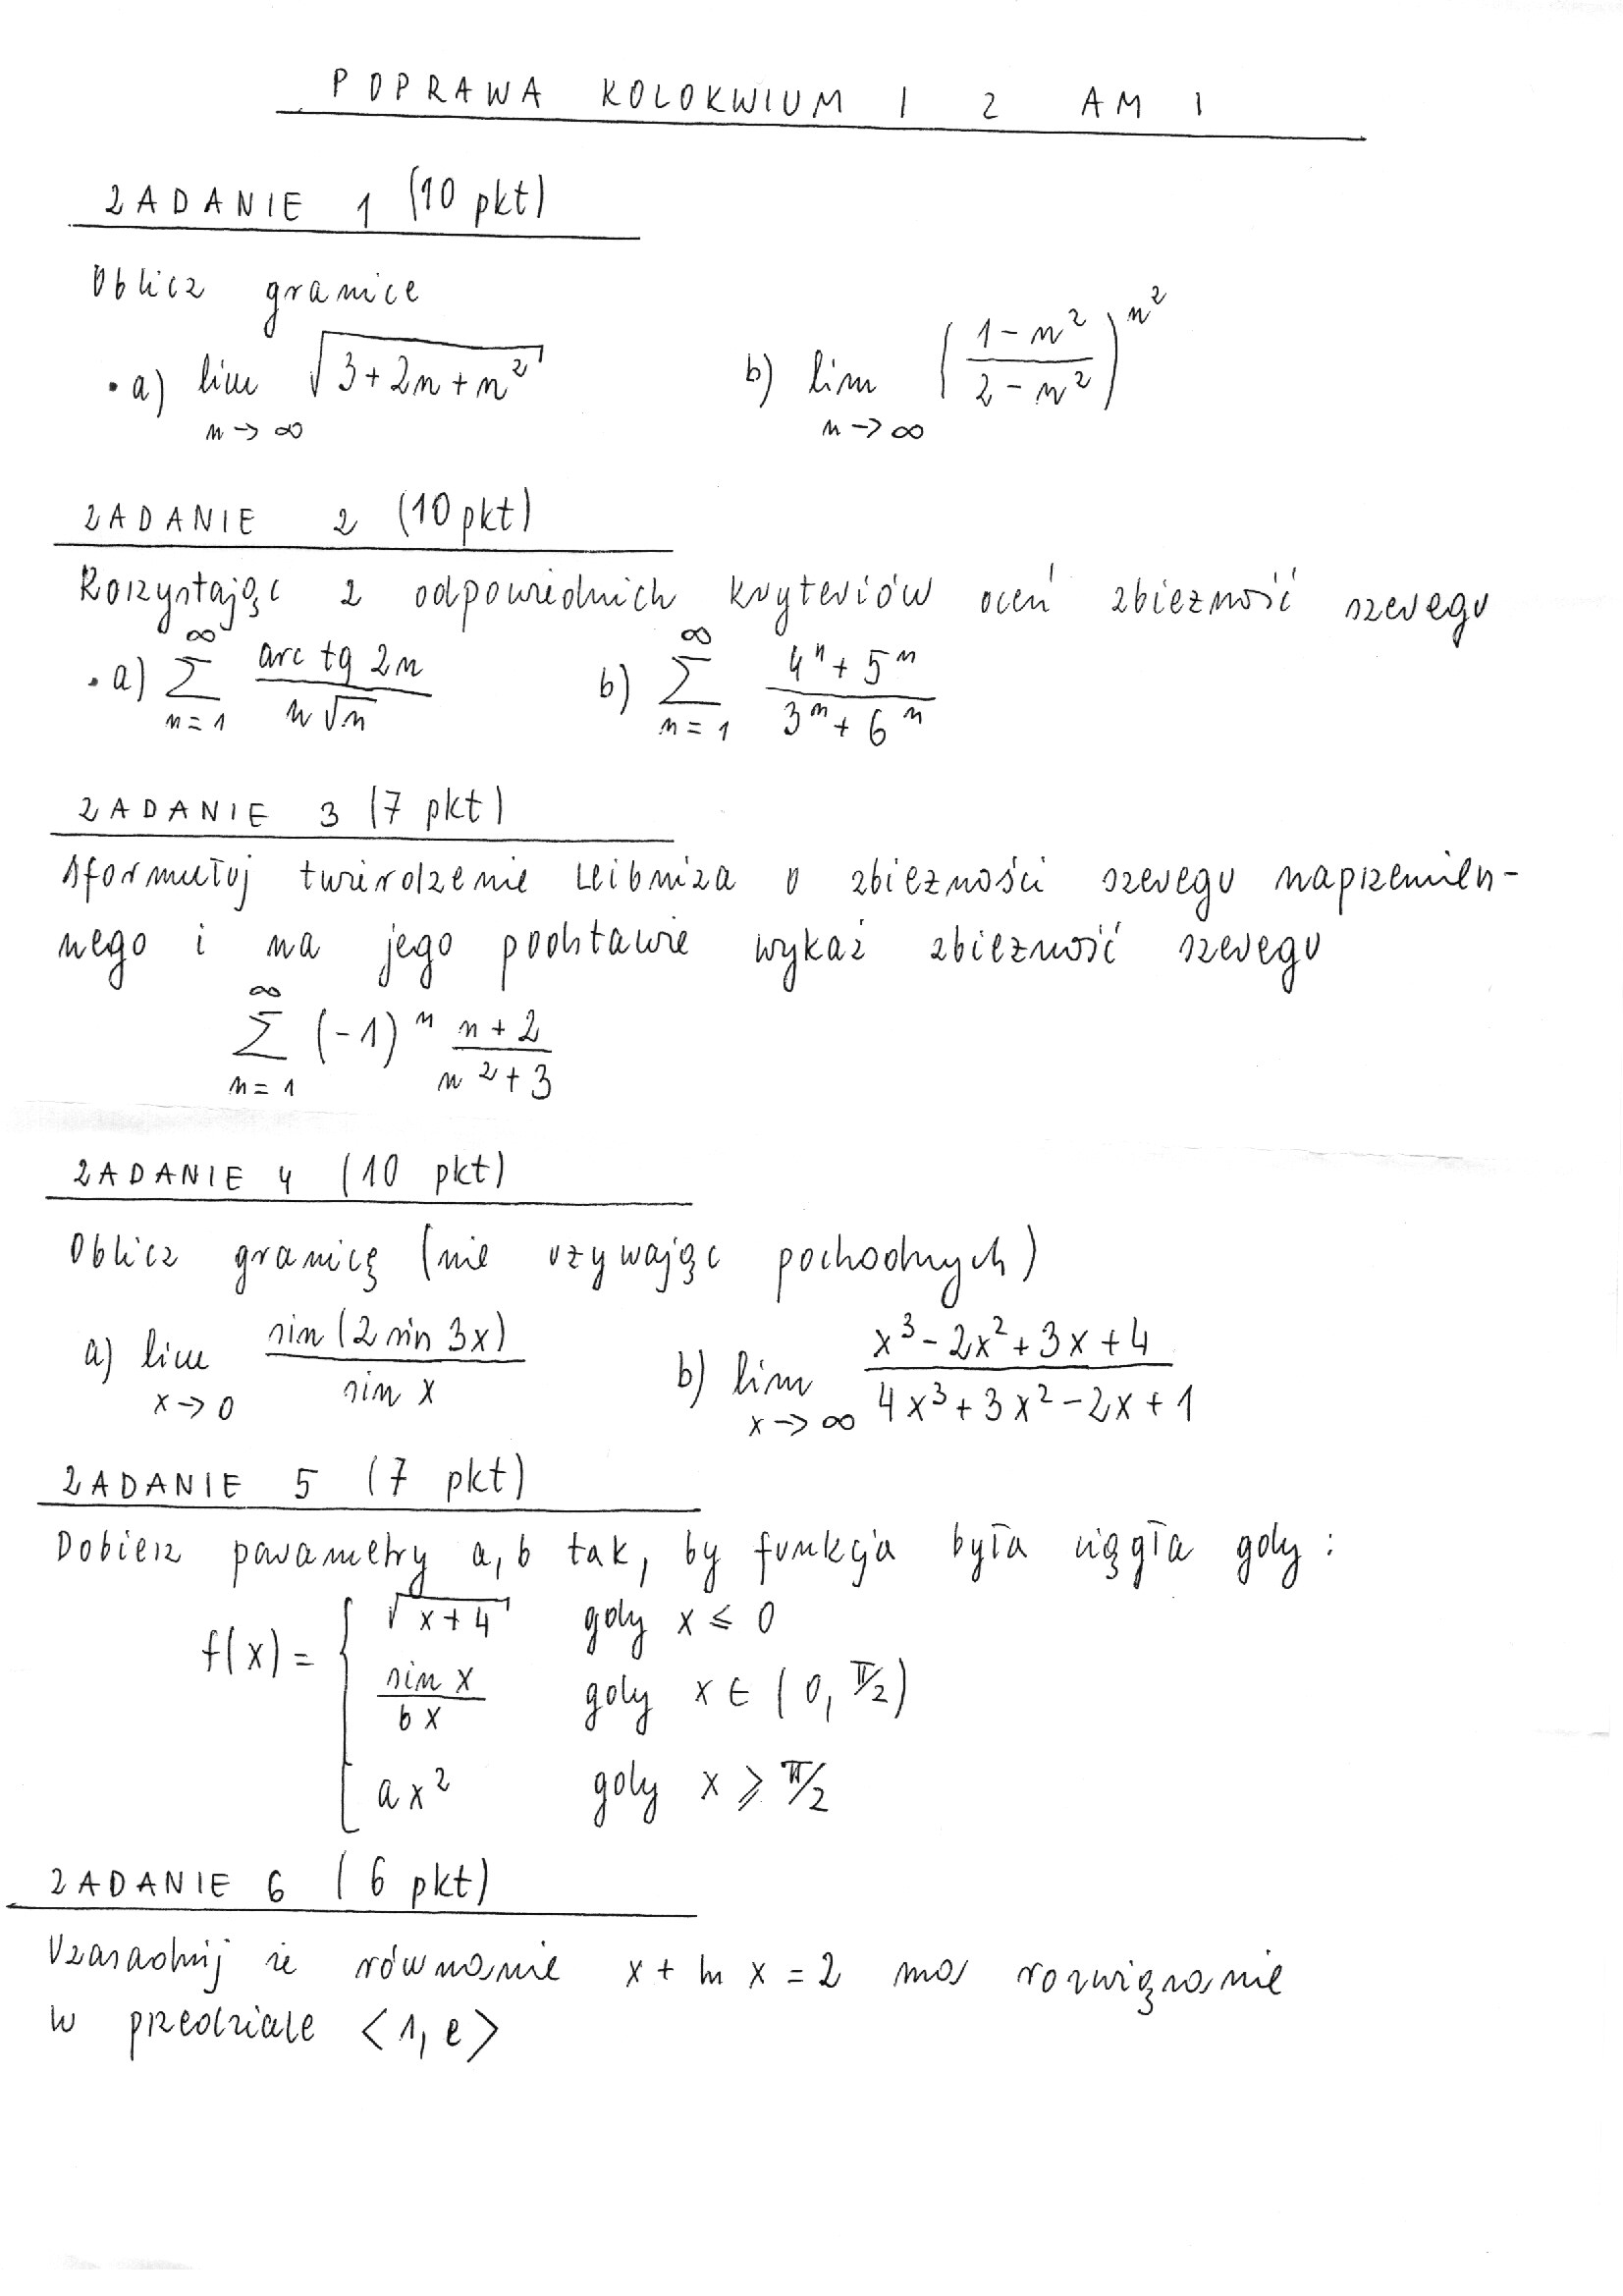 POPRAWA KOLOKWIUM I Z AM 1
ZADANIE 1 (10 pkt)
Oblicz granice
a) lim n→∞ √(3+2n+n²) b) lim n→∞ ((1-n²)/(2-n²))^n²
ZADANIE 2 (10 pkt)
Korzystając z odpowiednich kryteriów oceń zbieżność szeregu
a) ∑ n=1 ∞ (arc tg 2n)/(n√n) b) ∑ n=1 ∞ (4ⁿ+5ⁿ)/(3ⁿ+6ⁿ)
ZADANIE 3 (7 pkt)
Sformułuj twierdzenie Leibniza o zbieżności szeregu naprzemien-
nego i na jego podstawie wykaż zbieżność szeregu
∑ n=1 ∞ (-1)ⁿ (n+2)/(n²+3)
ZADANIE 4 (10 pkt)
Oblicz granicę (nie używając pochodnych)
a) lim x→0 (sin(2 sin 3x))/(sin x) b) lim x→∞ (x³-2x²+3x+4)/(4x³+3x²-2x+1)
ZADANIE 5 (7 pkt)
Dobierz parametry a, b tak, by funkcja była ciągła gdy:
f(x) = { √(x+4) gdy x ≤ 0
(sin x)/(bx) gdy x ∈ (0, π/2)
ax² gdy x ⩾ π/2
ZADANIE 6 (6 pkt)
Uzasadnij że równanie x + ln x = 2 ma rozwiązanie
w przedziale <1, e>